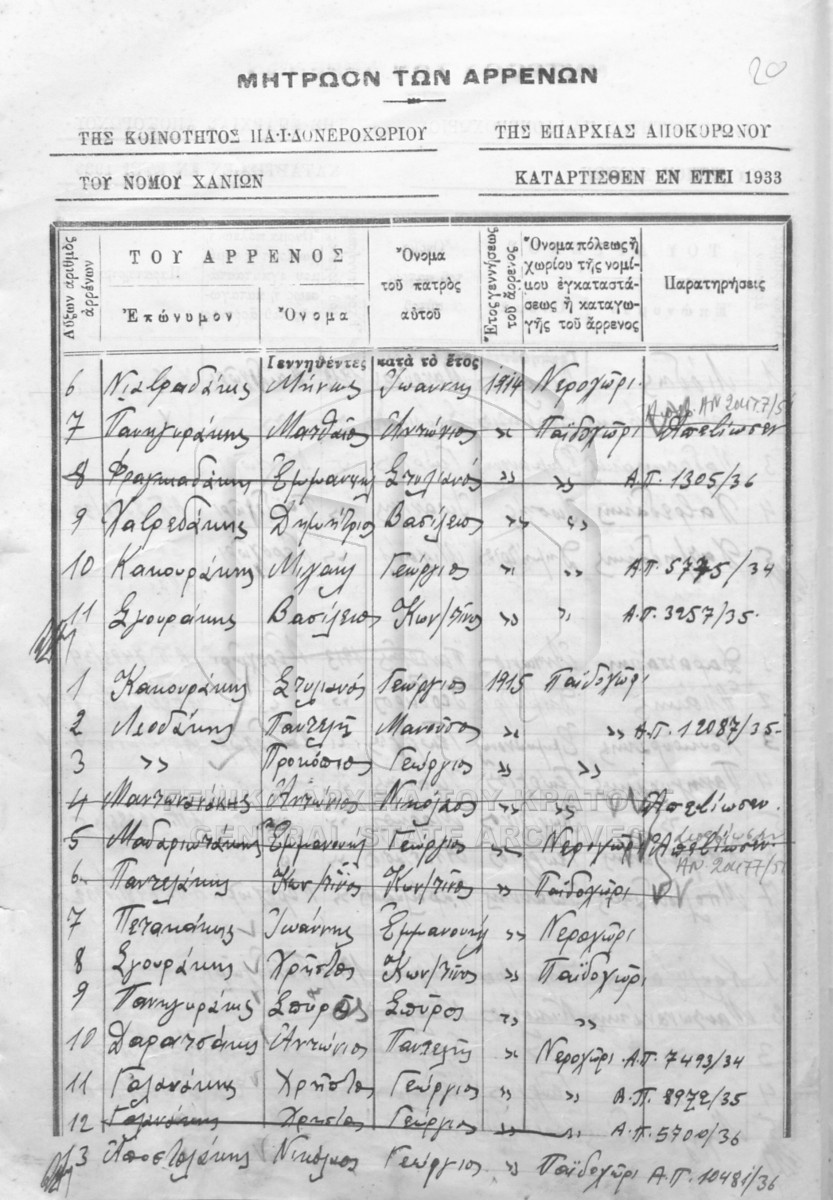 20
ΜΗΤΡΩΟΝ ΤΩΝ ΑΡΡΕΝΩΝ
ΤΗΣ ΚΟΙΝΟΤΗΤΟΣ ΠΑ·Ι·ΔΟΝΕΡΟΧΩΡΙΟΥ ΤΗΣ ΕΠΑΡΧΙΑΣ ΑΠΟΚΟΡΩΝΟΥ
ΤΟΥ ΝΟΜΟΥ ΧΑΝΙΩΝ ΚΑΤΑΡΤΙΣΘΕΝ ΕΝ ΕΤΕΙ 1933
Αὔξων ἀριθμὸς ἀρρένων
ΤΟΥ ΑΡΡΕΝΟΣ
Ἐπώνυμον Ὄνομα
Ὄνομα τοῦ πατρὸς αὐτοῦ
Ἔτος γεννήσεως τοῦ ἄρρενος
Ὄνομα πόλεως ἢ χωρίου τῆς νομίμου ἐγκαταστάσεως ἢ καταγωγῆς τοῦ ἄρρενος
Παρατηρήσεις
Γεννηθέντες κατὰ τὸ ἔτος
6 Μήνως Ἰωάννης 1914 Νεροχῶρι
7 Πανηγυράκης Ματθαῖος Ἀντώνιος " Παϊδοχῶρι Ἀπεβίωσεν
8 Φραγκιαδάκης Ἐμμανουήλ Στυλιανός " " Α.Π. 1305/36
9 Χατζεδάκης Δημήτριος Βασίλειος " "
10 Κακουράκης Μιχαήλ Γεώργιος " " Α.Π. 5775/34
11 Σγουράκης Βασίλειος Κων/τῖνος " " Α.Π. 3257/35
1 Κακουράκης Στυλιανός Γεώργιος 1915 Παϊδοχῶρι
2 Λιοδάκης Παντελῆς Μανοῦσος " " Α.Π. 12087/35
3 " Προκόπιος Γεώργιος " "
4 Ἀντώνιος Νικόλαος " " Ἀπεβίωσεν
5 Ἐμμανουήλ Γεώργιος " Νεροχῶρι Ἀπεβίωσεν
6 Παντελάκης Κων/τῖνος Κων/τῖνος " Παϊδοχῶρι
7 Πετακάκης Ἰωάννης Ἐμμανουήλ " Νεροχῶρι
8 Σγουράκης Χρῆστος Κων/τῖνος " Παϊδοχῶρι
9 Πανηγυράκης Σπῦρος Σπῦρος " "
10 Δαρατσάκης Ἀντώνιος Παντελῆς " Νεροχῶρι Α.Π. 7493/34
11 Γαλανάκης Χρῆστος Γεώργιος " " Α.Π. 8972/35
12 Γαλανάκης Χρῆστος Γεώργιος " " Α.Π. 5700/36
13 Ἀποστολάκης Νικόλαος Γεώργιος " Παϊδοχῶρι Α.Π. 10481/36
ΓΕΝΙΚΑ ΑΡΧΕΙΑ ΤΟΥ ΚΡΑΤΟΥΣ
GENERAL STATE ARCHIVES